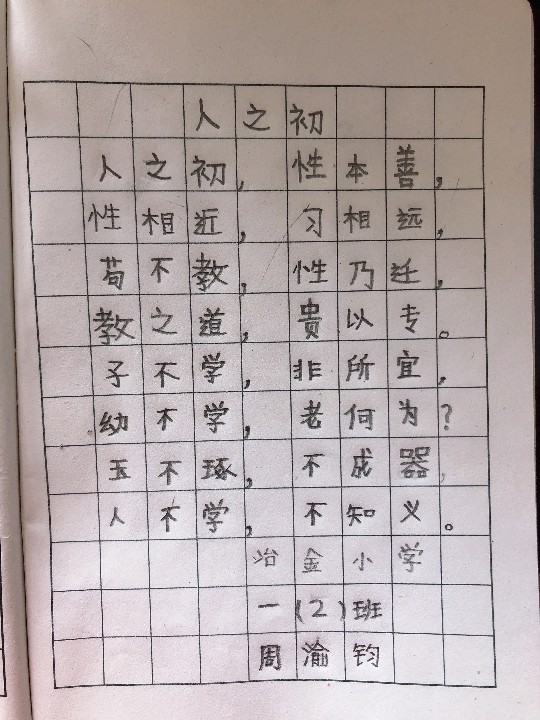 人之初
人之初，性本善，
性相近，习相远，
苟不教，性乃迁，
教之道，贵以专。
子不学，非所宜，
幼不学，老何为？
玉不琢，不成器，
人不学，不知义。
冶金小学
一(2)班
周渝钧